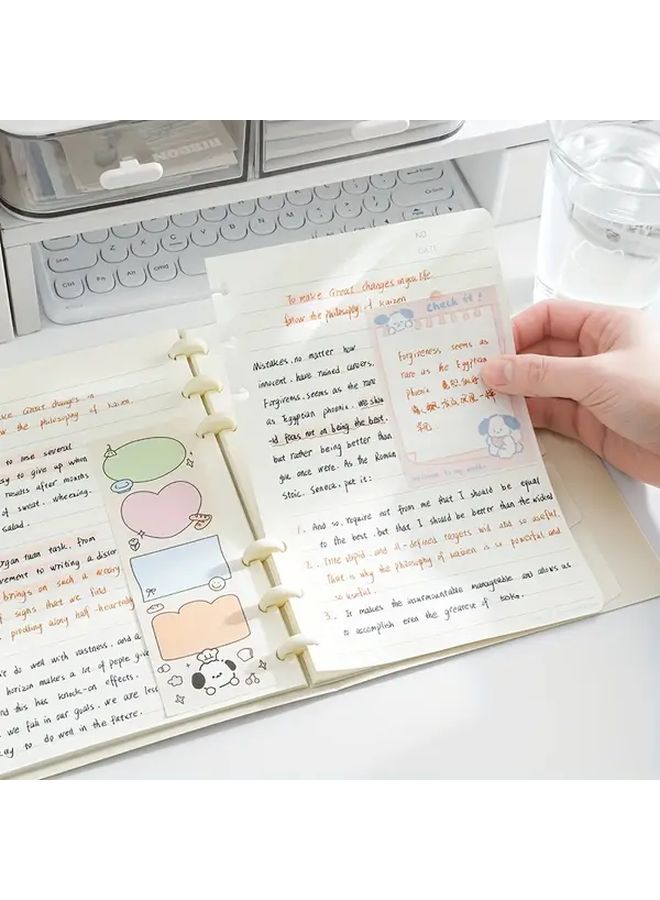 RIBBON
Enter
Shift
Z X C V B N M
Ctrl Fn Alt
ke Great changes in
the philosophy of kaizen.
to lose several
ay to give up when
results after months
of sweat, wheezing,
salad.
organ tuan task, from
rement to writing a disser
brings on such a weary
of sighs that we find
prodding along half-heartedly
We do well with vastness, and a
horizon makes a lot of people give
and this has knock-on effects.
we fail in our goals, we are less
to do well in the future.
NO
DATE
To make Great changes in you life
follow the philosophy of kaizen
Mistakes, no matter how
innocent, have ruined careers.
Forgiveness, seems as the rare
as Egyptian phoenix. We shou
-ld focus not on being the best.
but rather being better than
you once were. As the Roman
Stoic, Seneca, put it:
Check it!
Forgiveness, seems as
rare as the Egyptian
phoenix
welcome to my world
1. And so, require not from me that I should be equal
to the best, but that I should be better than the wicked
2. and ill-defined targets wild and so useful.
That is why the philosophy of kaizen is so powerful and
so useful.
3. It makes the insurmountable manageable, and allows us
to accomplish even the greatest of tasks.